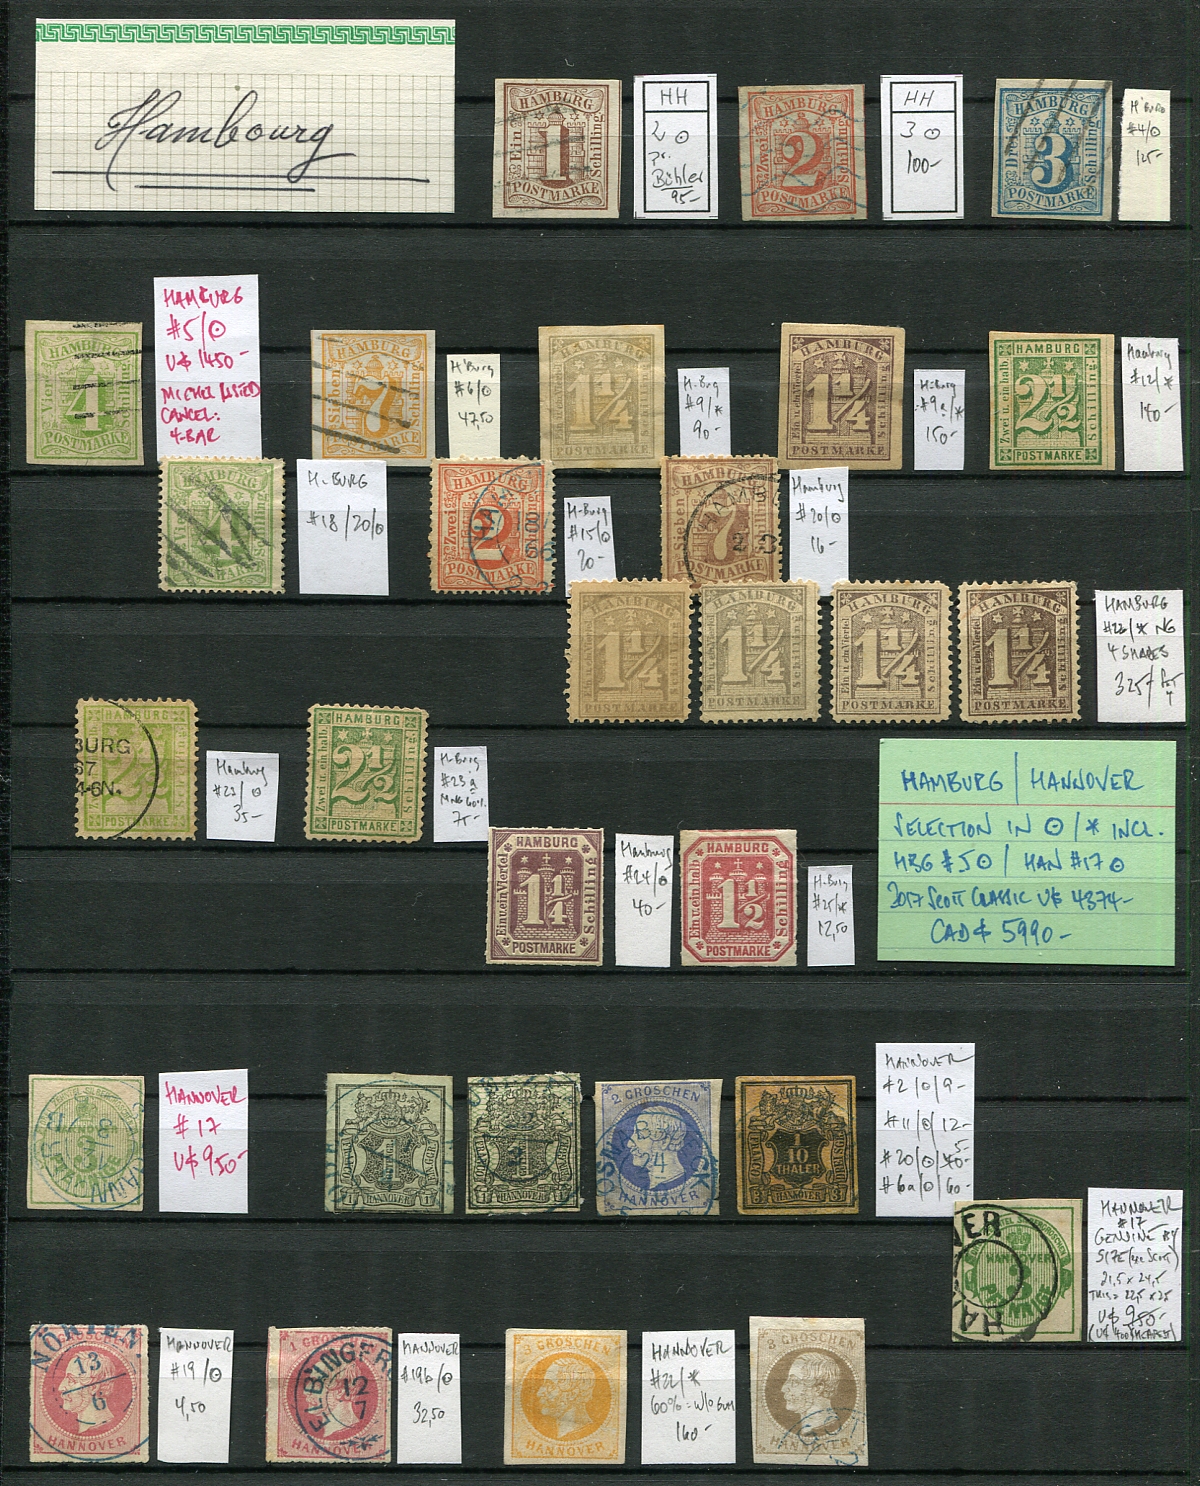 Hambourg
HAMBURG
Ein
1
Schilling
POSTMARKE
HH
2 ⊙
pr.
Bühler
95-
HAMBURG
Zwei
2
Schilling
POSTMARKE
HH
3 ⊙
100-
HAMBURG
3
Schilling
POSTMARKE
H'BURG
#4/⊙
125-
HAMBURG
Vier
4
Schilling
POSTMARKE
HAMBURG
#5/⊙
U$ 1450-
MICHEL LISTED
CANCEL:
4-BAR
HAMBURG
Sieben
7
Schilling
POSTMARKE
H'Burg
#6/⊙
47,50
HAMBURG
Ein u. ein Viertel
1¼
Schilling
POSTMARKE
H-Burg
#9/*
90-
HAMBURG
Ein u. ein Viertel
1¼
Schilling
POSTMARKE
H-Burg
#9a/*
150-
HAMBURG
Zwei u. ein halb
2½
Schilling
POSTMARKE
Hamburg
#12/*
140-
4
H-BURG
#18/20/⊙
HAMBURG
Zwei
2
Schilling
POSTMARKE
H-Burg
#15/⊙
20-
HAMBURG
Sieben
7
Schilling
POSTMARKE
Hamburg
#20/⊙
16-
HAMBURG
Ein u. ein Viertel
1¼
Schilling
POSTMARKE
HAMBURG
Ein u. ein Viertel
1¼
Schilling
POSTMARKE
HAMBURG
Ein u. ein Viertel
1¼
Schilling
POSTMARKE
HAMBURG
Ein u. ein Viertel
1¼
Schilling
POSTMARKE
HAMBURG
#22/* NG
4 SHADES
325-
HAMBURG
2½
POSTMARKE
BURG
67
4-6N.
Hamburg
#23/⊙
35-
HAMBURG
Zwei u. ein halb
2½
Schilling
POSTMARKE
H-Burg
#23a
MNG 60%
75-
HAMBURG
Ein u. ein Viertel
1¼
Schilling
POSTMARKE
Hamburg
#24/⊙
40-
HAMBURG
Ein u. ein halb
1½
Schilling
POSTMARKE
H-Burg
#25/*
12,50
HAMBURG / HANNOVER
SELECTION IN ⊙/* INCL.
HBG #5⊙ / HAN #17⊙
2017 SCOTT CLASSIC U$ 4374-
CAD$ 5990-
HANNOVER
3
HANNOVER
#17
U$ 950-
1
HANNOVER
1
1
HANNOVER
1
2 GROSCHEN
24
HANNOVER
1
10
THALER
3
HANNOVER
3
HANNOVER
#2/⊙/9-
#11/⊙/12-
5-
#20/⊙/40-
#6a/⊙/60-
HANNOVER
3
HANNOVER
#17
GENUINE BY
SIZE (see Scott)
21,5 x 24,5
THIS = 22,5 x 25
U$ 950-
NÖRTEN
GROSCHEN
13
6
HANNOVER
HANNOVER
#19/⊙
4,50
1 GROSCHEN
ELBINGERODE
12
7
HANNOVER
HANNOVER
#19b/⊙
32,50
3 GROSCHEN
HANNOVER
HANNOVER
#22/*
60% = W/O GUM
160-
3 GROSCHEN
HANNOVER